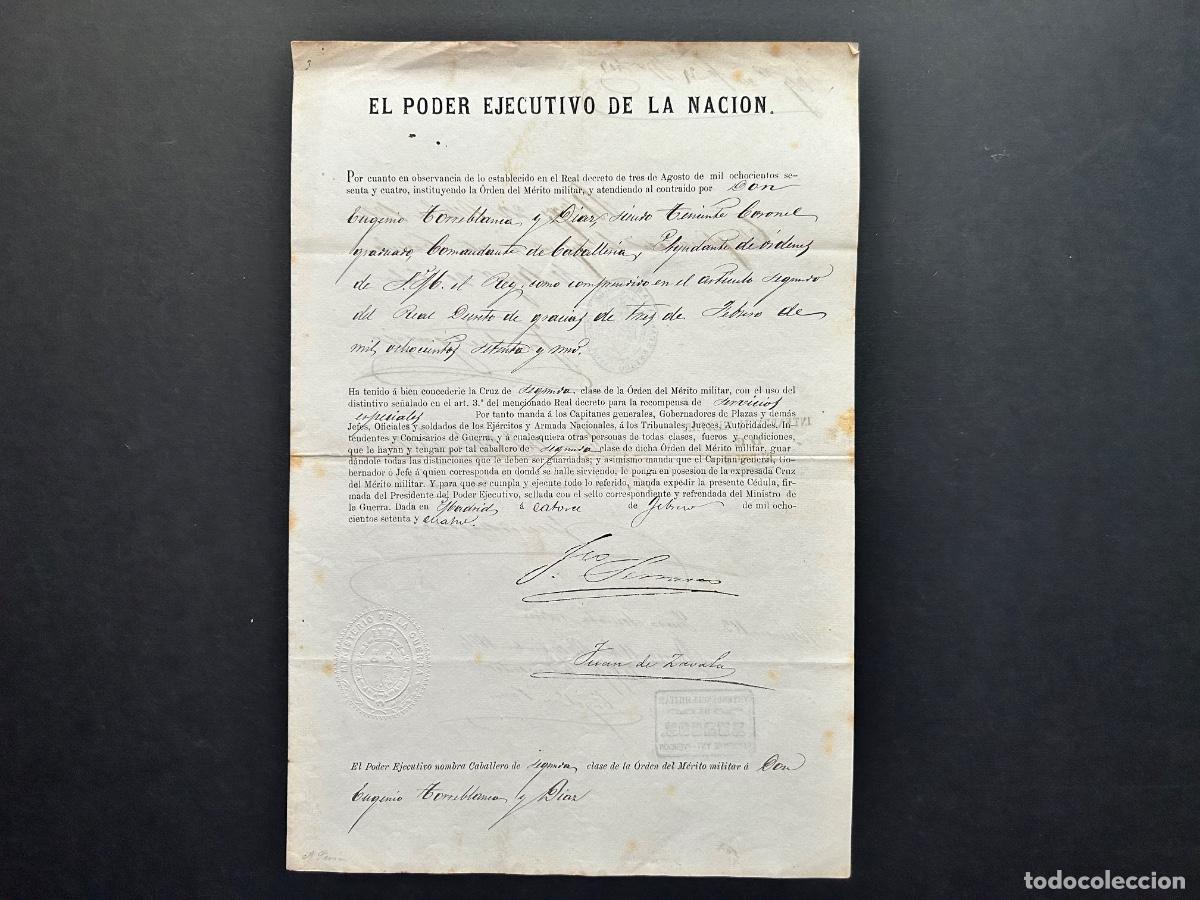 3
EL PODER EJECUTIVO DE LA NACION.
Por cuanto en observancia de lo establecido en el Real decreto de tres de Agosto de mil ochocientos se-
senta y cuatro, instituyendo la Órden del Mérito militar, y atendiendo al contraido por Don
Eugenio Torreblanca y Diaz, siendo Teniente Coronel
graduado, Comandante de Caballeria, Ayudante de órdenes
de S. M. el Rey, como comprendido en el articulo segundo
del Real Decreto de gracias de tres de Febrero de
mil ochocientos setenta y uno.
Ha tenido á bien concederle la Cruz de segunda clase de la Órden del Mérito militar, con el uso del
distintivo señalado en el art. 3.º del mencionado Real decreto para la recompensa de servicios
especiales Por tanto manda á los Capitanes generales, Gobernadores de Plazas y demás
Jefes, Oficiales y soldados de los Ejércitos y Armada Nacionales, á los Tribunales, Jueces, Autoridades, In-
tendentes y Comisarios de Guerra, y á cualesquiera otras personas de todas clases, fueros y condiciones,
que le hayan y tengan por tal caballero de segunda clase de dicha Órden del Mérito militar, guar-
dándole todas las distinciones que le deben ser guardadas; y asimismo manda que el Capitan general, Go-
bernador ó Jefe á quien corresponda en donde se halle sirviendo, le ponga en posesion de la expresada Cruz
del Mérito militar. Y para que se cumpla y ejecute todo lo referido, manda expedir la presente Cédula, fir-
mada del Presidente del Poder Ejecutivo, sellada con el sello correspondiente y refrendada del Ministro de
la Guerra. Dada en Madrid á catorce de Febrero de mil ocho-
cientos setenta y cuatro.
Fco Serrano
Juan de Zavala
MINISTERIO DE LA GUERRA
El Poder Ejecutivo nombra Caballero de segunda clase de la Órden del Mérito militar á Don
Eugenio Torreblanca y Diaz
todocoleccion